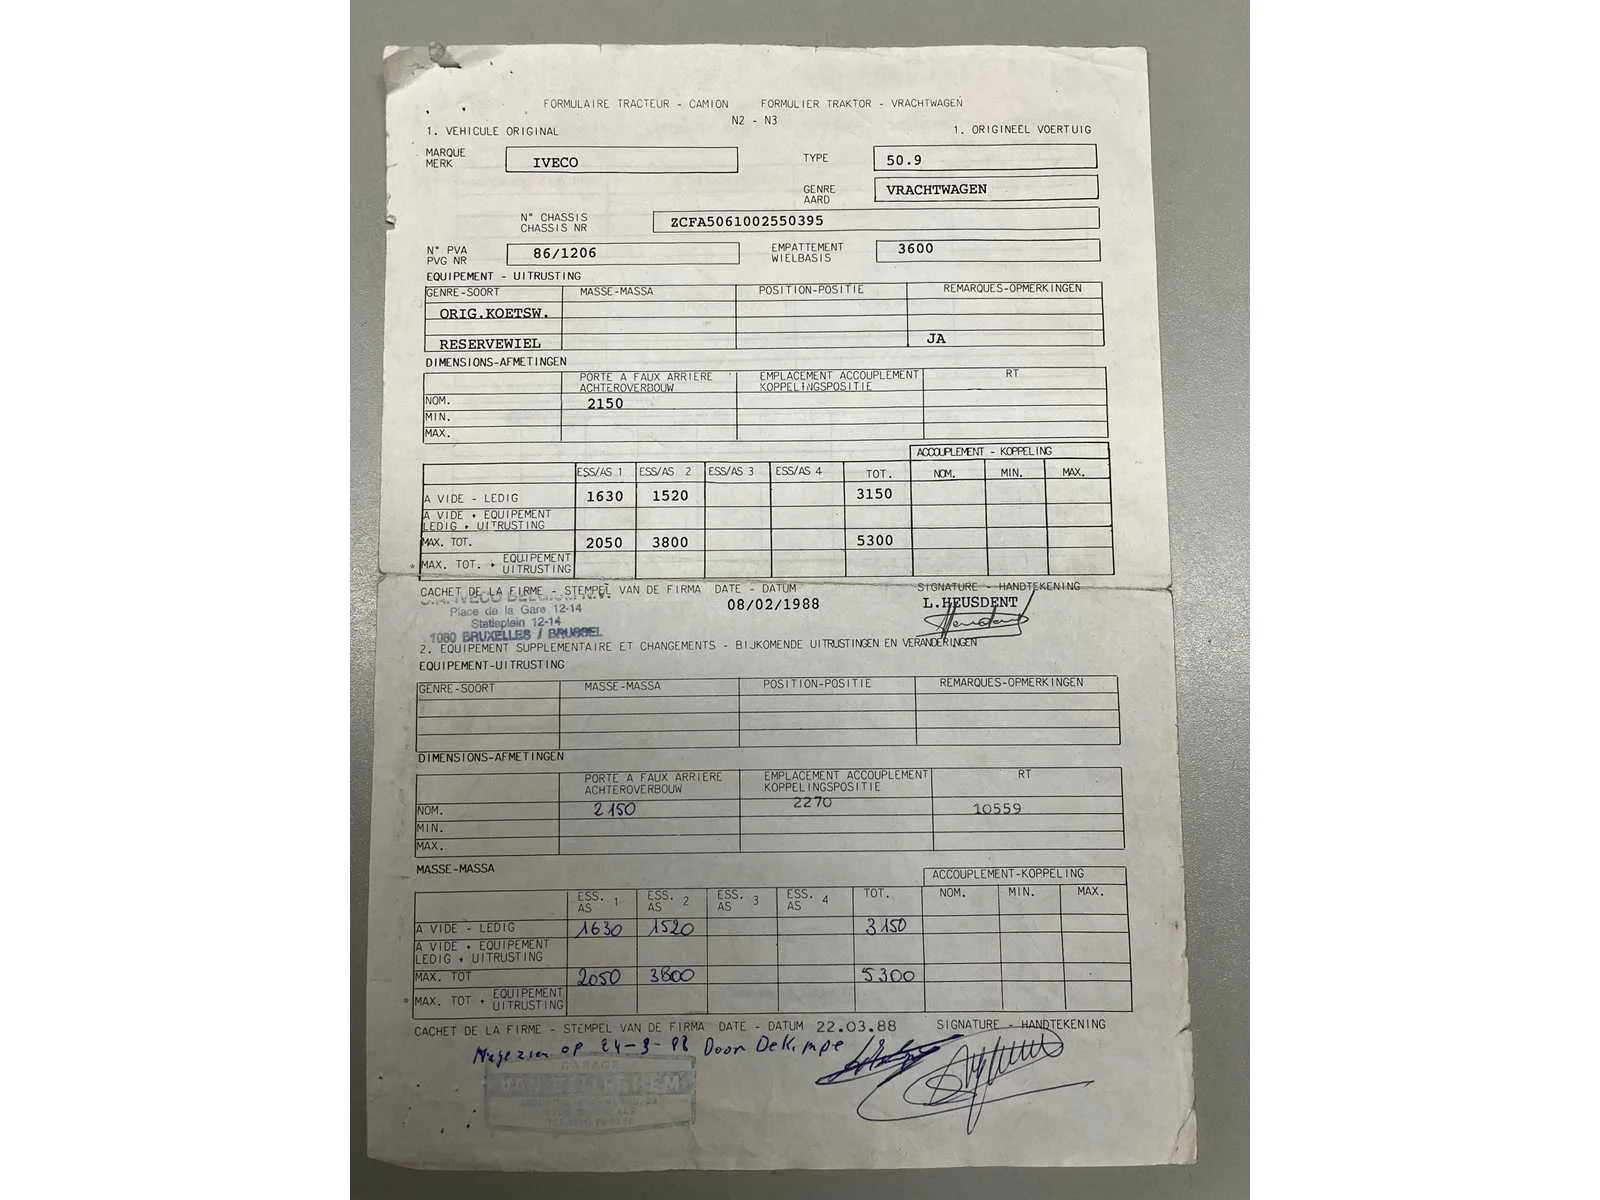 FORMULAIRE TRACTEUR - CAMION FORMULIER TRAKTOR - VRACHTWAGEN
N2 - N3
1. VEHICULE ORIGINAL 1. ORIGINEEL VOERTUIG
MARQUE
MERK IVECO TYPE 50.9
GENRE
AARD VRACHTWAGEN
N° CHASSIS
CHASSIS NR ZCFA5061002550395
N° PVA
PVG NR 86/1206 EMPATTEMENT
WIELBASIS 3600
EQUIPEMENT - UITRUSTING
GENRE-SOORT MASSE-MASSA POSITION-POSITIE REMARQUES-OPMERKINGEN
ORIG.KOETSW.
RESERVEWIEL JA
DIMENSIONS-AFMETINGEN
PORTE A FAUX ARRIERE EMPLACEMENT ACCOUPLEMENT RT
ACHTEROVERBOUW KOPPELINGSPOSITIE
NOM. 2150
MIN.
MAX.
ACCOUPLEMENT - KOPPELING
ESS/AS 1 ESS/AS 2 ESS/AS 3 ESS/AS 4 TOT. NOM. MIN. MAX.
A VIDE - LEDIG 1630 1520 3150
A VIDE + EQUIPEMENT
LEDIG + UITRUSTING
MAX. TOT. 2050 3800 5300
* MAX. TOT. + EQUIPEMENT
UITRUSTING
CACHET DE LA FIRME - STEMPEL VAN DE FIRMA DATE - DATUM SIGNATURE - HANDTEKENING
S.A. IVECO BELGIUM N.V. 08/02/1988 L.HEUSDENT
Place de la Gare 12-14
Statieplein 12-14
1080 BRUXELLES / BRUSSEL
2. EQUIPEMENT SUPPLEMENTAIRE ET CHANGEMENTS - BIJKOMENDE UITRUSTINGEN EN VERANDERINGEN
EQUIPEMENT-UITRUSTING
GENRE-SOORT MASSE-MASSA POSITION-POSITIE REMARQUES-OPMERKINGEN
DIMENSIONS-AFMETINGEN
PORTE A FAUX ARRIERE EMPLACEMENT ACCOUPLEMENT RT
ACHTEROVERBOUW KOPPELINGSPOSITIE
NOM. 2150 2270 10559
MIN.
MAX.
MASSE-MASSA ACCOUPLEMENT-KOPPELING
ESS. AS 1 ESS. AS 2 ESS. AS 3 ESS. AS 4 TOT. NOM. MIN. MAX.
A VIDE - LEDIG 1630 1520 3150
A VIDE + EQUIPEMENT
LEDIG + UITRUSTING
MAX. TOT 2050 3800 5300
* MAX. TOT + EQUIPEMENT
UITRUSTING
CACHET DE LA FIRME - STEMPEL VAN DE FIRMA DATE - DATUM 22.03.88 SIGNATURE - HANDTEKENING
Nagezien op 24-3-88 Door DeKimpe
GARAGE